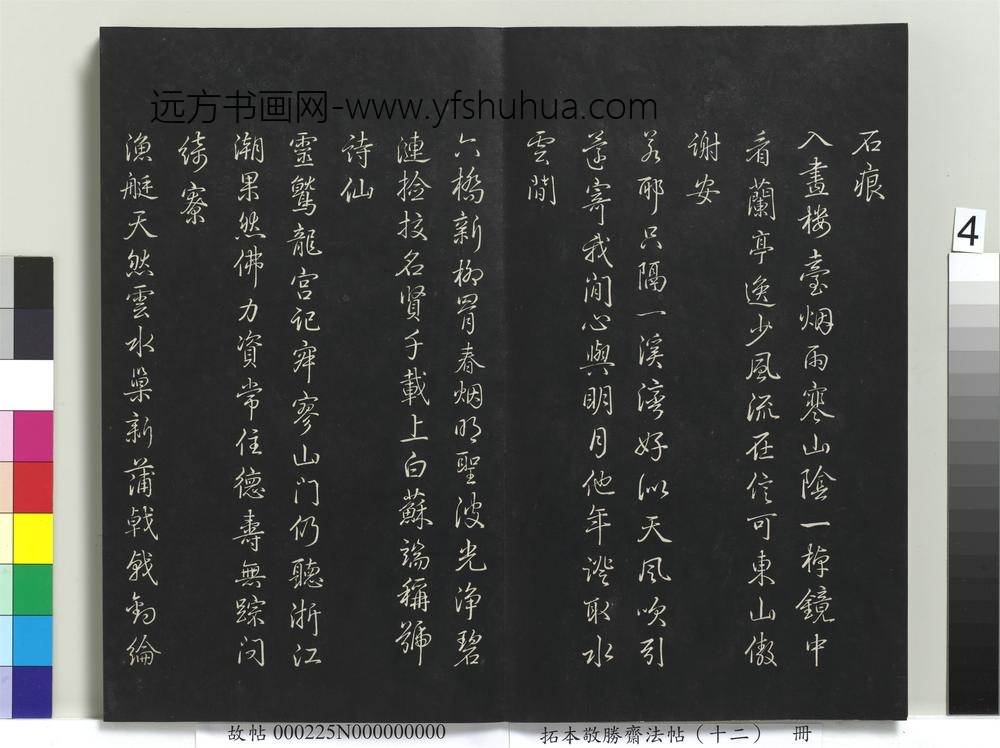 石痕
入畫楼臺烟雨寒山陰一棹鏡中
看蘭亭逸少風流在信可東山傲
謝安
若耶只隔一溪湾好似天風吹引
還寄我閒心與明月他年證取水
雲間
六橋新柳罥春烟明聖波光淨碧
漣捡挍名賢千載上白蘇端稱號
詩仙
靈鷲龍宮記寂寥山门仍聽浙江
潮果然佛力資常住德壽無踪问
綺寮
漁艇天然雲水巢新蒲戢戢釣綸
远方书画网-www.yfshuhua.com
4
故帖 000225N000000000
拓本敬勝齋法帖（十二） 冊